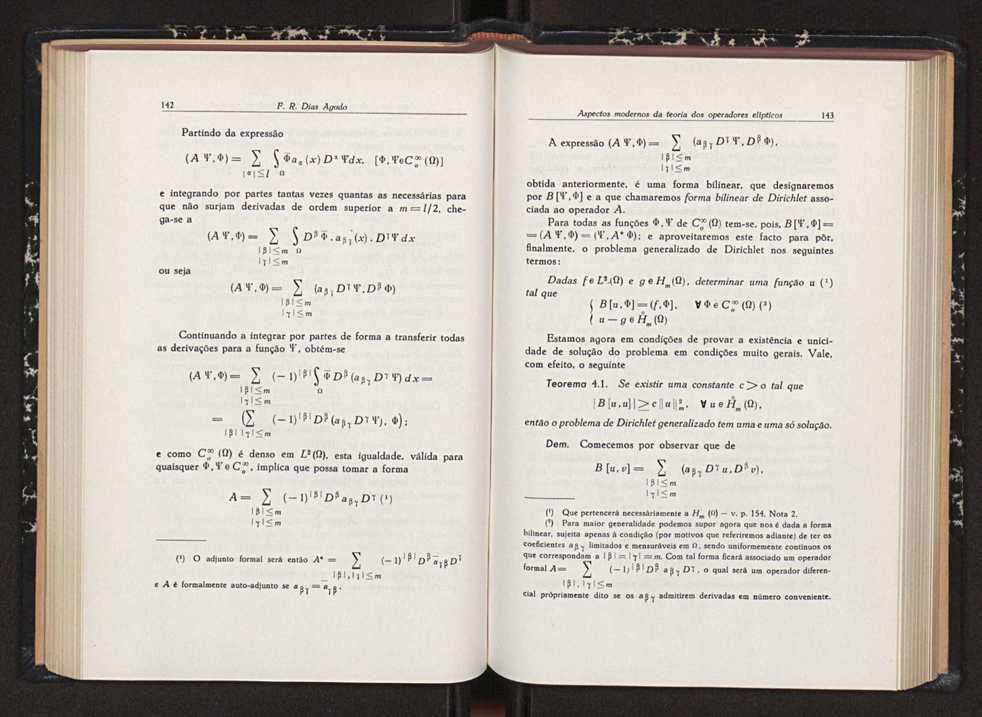 142 F. R. Dias Agudo
Partindo da expressão
(A Ψ, Φ) = ∑ ∫ Φ̅ a_α (x) D^α Ψ dx, [Φ, Ψ ϵ C_o^∞ (Ω)]
|α| ≤ l Ω
e integrando por partes tantas vezes quantas as necessárias para
que não surjam derivadas de ordem superior a m = l/2, che-
ga-se a
(A Ψ, Φ) = ∑ ∫ D^β Φ̅ . a_βγ (x) . D^γ Ψ dx
|β| ≤ m Ω
|γ| ≤ m
ou seja
(A Ψ, Φ) = ∑ (a_βγ D^γ Ψ, D^β Φ)
|β| ≤ m
|γ| ≤ m
Continuando a integrar por partes de forma a transferir todas
as derivações para a função Ψ, obtém-se
(A Ψ, Φ) = ∑ (— 1)^|β| ∫ Φ̅ D^β (a_βγ D^γ Ψ) dx =
|β| ≤ m Ω
|γ| ≤ m
= (∑ (— 1)^|β| D^β (a_βγ D^γ Ψ), Φ);
|β| |γ| ≤ m
e como C_o^∞ (Ω) é denso em L² (Ω), esta igualdade, válida para
quaisquer Φ, Ψ ϵ C_o^∞, implica que possa tomar a forma
A = ∑ (— 1)^|β| D^β a_βγ D^γ (¹)
|β| ≤ m
|γ| ≤ m
(¹) O adjunto formal será então A* = ∑ (— 1)^|β| D^β a̅_γβ D^γ
|β|, |γ| ≤ m
e A é formalmente auto-adjunto se a_βγ = a̅_γβ.
Aspectos modernos da teoria dos operadores elípticos 143
A expressão (A Ψ, Φ) = ∑ (a_βγ D^γ Ψ, D^β Φ),
|β| ≤ m
|γ| ≤ m
obtida anteriormente, é uma forma bilinear, que designaremos
por B [Ψ, Φ] e a que chamaremos forma bilinear de Dirichlet asso-
ciada ao operador A.
Para todas as funções Φ, Ψ de C_o^∞ (Ω) tem-se, pois, B [Ψ, Φ] =
= (A Ψ, Φ) = (Ψ, A* Φ); e aproveitaremos este facto para pôr,
finalmente, o problema generalizado de Dirichlet nos seguintes
termos:
Dadas f ϵ L² (Ω) e g ϵ H_m (Ω), determinar uma função u (¹)
tal que
{ B [u, Φ] = (f, Φ], ∀ Φ ϵ C_o^∞ (Ω) (²)
{ u — g ϵ H̊_m (Ω)
Estamos agora em condições de provar a existência e unici-
dade de solução do problema em condições muito gerais. Vale,
com efeito, o seguinte
Teorema 4.1. Se existir uma constante c > o tal que
|B [u, u]| ≥ c ‖u‖²_m, ∀ u ϵ H̊_m (Ω),
então o problema de Dirichlet generalizado tem uma e uma só solução.
Dem. Comecemos por observar que de
B [u, v] = ∑ (a_βγ D^γ u, D^β v),
|β| ≤ m
|γ| ≤ m
(¹) Que pertencerá necessàriamente a H_m (Ω) — v. p. 154, Nota 2.
(²) Para maior generalidade podemos supor agora que nos é dada a forma
bilinear, sujeita apenas à condição (por motivos que referiremos adiante) de ter os
coeficientes a_βγ limitados e mensuráveis em Ω, sendo uniformemente contínuos os
que correspondam a |β| = |γ| = m. Com tal forma ficará associado um operador
formal A = ∑ (— 1)^|β| D^β a_βγ D^γ, o qual será um operador diferen-
|β|, |γ| ≤ m
cial pròpriamente dito se os a_βγ admitirem derivadas em número conveniente.